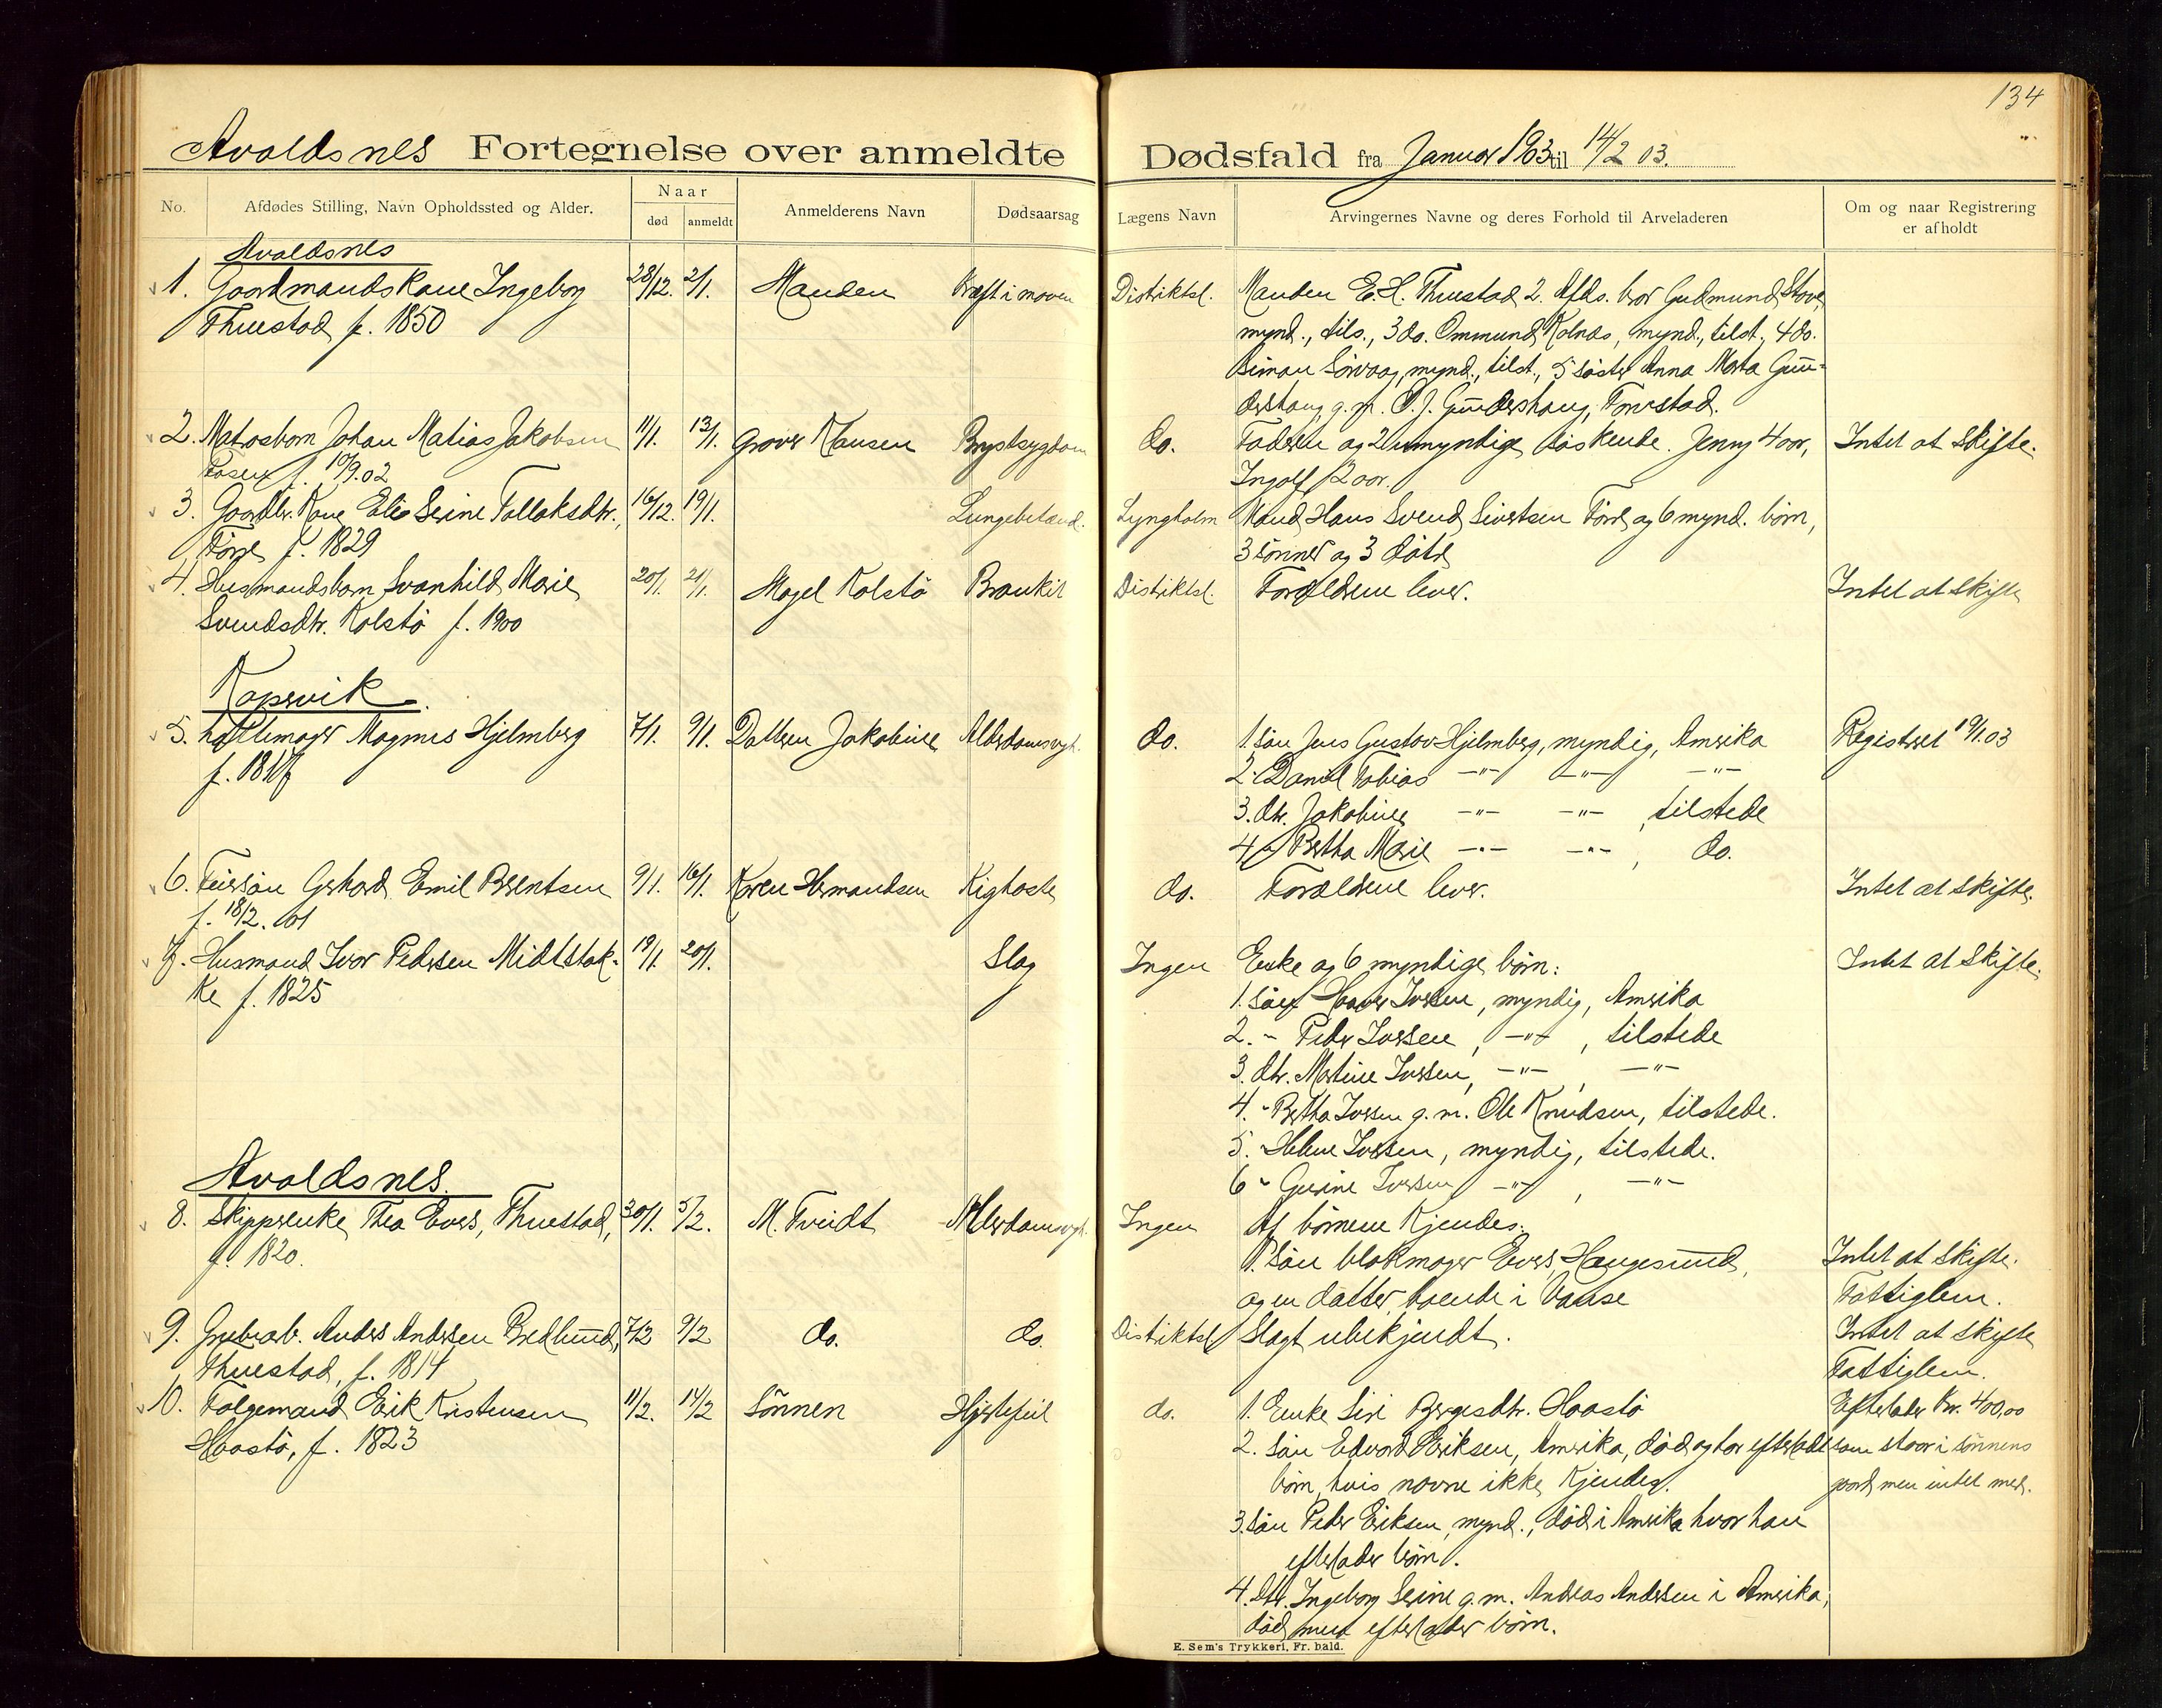 134
Avaldsnes Fortegnelse over anmeldte Dødsfald fra Januar 1903 til 14/2 03.
No. Afdødes Stilling, Navn Opholdssted og Alder. Naar død anmeldt Anmelderens Navn Dødsaarsag Lægens Navn Arvingernes Navne og deres Forhold til Arveladeren Om og naar Registrering er afholdt
Avaldsnes
1. Gaardmandskone Ingeborg 28/12. 2/1. Manden Kræft i maven Distriktsl. Manden E. H. Thuestad 2. Afds. bror Gudmund Stave,
Thuestad f. 1850 mynd., tils., 3 do. Ommund Kolnæs, mynd., tilst., 4 do.
Simon Sørvaag, mynd., tilst., 5 søster Anna Marta Gun-
dershaug g. m. O. J. Gundershaug, Thuestad.
2. Matrosbarn Johan Matias Jakobsen 11/1. 13/1. Graver Hansen Brystsygdom do. Faderen og 2 umyndige søskende. Jenny 4 aar, Intet at skifte.
Fosen f. 10/9.02 Ingolf 2 aar.
3. Gaardbr. Kone Elis Serine Tollaksdtr., 16/12. 19/1. Lungebetænd. Lyngholm Mand Hans Svend Sivertsen Førre og 6 mynd. børn,
Førre f. 1829 3 sønner og 3 døtre
4. Husmandsbarn Svanhild Marie 20/1. 21/1. Magel Kolstø Bronkit Distriktsl. Forældrene lever. Intet at skifte
Svendsdtr. Kolstø f. 1900
Kopervik.
5. Hattemager Magnus Hjelmberg 7/1. 9/1. Datteren Jakobine Alderdomssvgh. do. 1. søn Jens Gustav Hjelmberg, myndig, Amerika Registreret 19/1.03
f. 1817 2. " Daniel Tobias —"— —"— —"—
3. dtr. Jakobine —"— —"—, tilstede
4 " Bertha Marie —"— —"—, do.
6. Feiersøn Gerhard Emil Berentsen 9/1. 16/1. Karen Hermandsen Kighoste do. Forældrene lever. Intet at skifte.
f. 18/2. 01
7. Husmand Ivar Pedersen Midtstok- 19/1. 20/1. Slag Ingen Enke og 6 myndige børn: Intet at skifte.
ke f. 1825 1. søn Haaver Iversen, myndig, Amerika
2. " Peder Iversen, —"—, tilstede
3. dtr. Martine Iversen, —"—, —"—
4. " Bertha Iversen g. m. Ole Knudsen, tilstede.
5. " Helene Iversen, myndig, tilstede.
6 " Gurine Iversen —"—, —"—
Avaldsnes.
8. Skipperenke Thea Evers, Thuestad, 30/1. 5/2. M. Tveidt Alderdomssvgh. Ingen Af børnene kjendes:
f. 1820. 1. søn blokmager Evers, Haugesund, Intet at skifte.
og en datter, boende i Vanse Fattiglem.
9. Grubearb. Anders Andersen Bredlund, 7/2 9/2 do. do. Distriktsl Slægt ubekjendt. Intet at skifte
Thuestad, f. 1814 Fattiglem.
10. Følgemand Erik Kristensen 11/2. 14/2 Sønnen Hjertefeil do. 1. Enke Siri Børgesdtr. Haastø Efterlader Kr. 400,00
Haastø, f. 1823 2. søn Edvard Eriksen, Amerika, død og har efterladt som staar i sønnens
børn, hvis navne ikke kjendes. gaard, men intet mer.
3. søn Peder Eriksen, mynd., død i Amerika hvor han
efterlader børn.
4. dtr. Ingeborg Serine g. m. Andreas Andersen i Amerika,
død, men efterlader børn.
E. Sem's Trykkeri, Fr. hald.